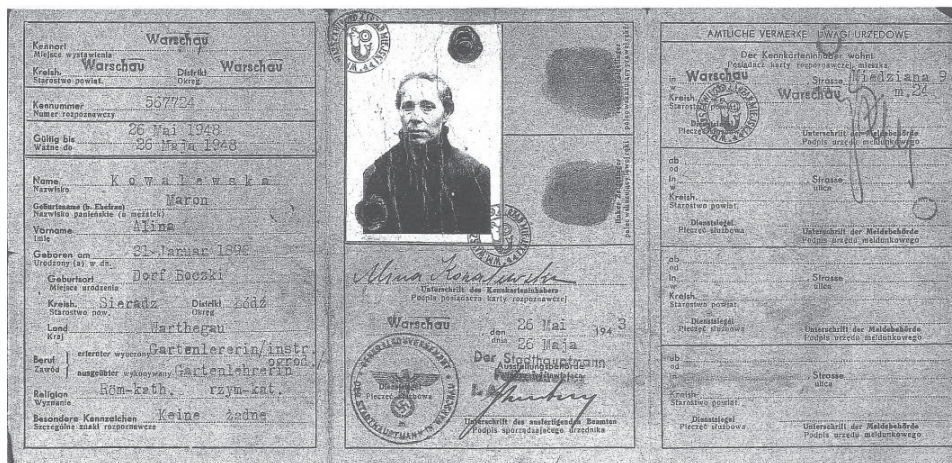 Kennort
Miejsce wystawienia
Warschau
Kreish.
Starostwo powiat.
Warschau
Distrikt
Okręg
Warschau
Kennummer
Numer rozpoznawczy
567724
Gültig bis
Ważne do
26 Mai 1948
26 Maja 1948
Name
Nazwisko
Kowalewska
Geburtsname (b. Ehefrau)
Nazwisko panieńskie (u mężatek)
Maron
Vorname
Imię
Alina
Geboren am
Urodzony (a) w dn.
Januar
Geburtsort
Miejsce urodzenia
Dorf Boczki
Kreish.
Starostwo pow.
Sieradz
Distrikt
Okręg
Łódź
Land
Kraj
Warthegau
Beruf
Zawód
erlernter wyuczony
Gartenlererin/instr.
ogrod.
ausgeübter wykonywany
Gartenlehrerin
Religion
Wyznanie
Röm-kath. rzym-kat.
Besondere Kennzeichen
Szczególne znaki rozpoznawcze
Keine żadne
Alina Kowalewska
Unterschrift des Kennkarteninhabers
Podpis posiadacza karty rozpoznawczej
Warschau
den
dnia
26 Mai 1943
26 Maja
Der Stadthauptmann
Ausstellungsbehörde
Dienstsiegel
Pieczęć służbowa
Unterschrift des ausfertigenden Beamten
Podpis sporządzającego urzędnika
AMTLICHE VERMERKE UWAGI URZĘDOWE
Der Kennkarteninhaber wohnt
Posiadacz karty rozpoznawczej mieszka
in
w
Warschau
Strasse
Miedziana
m.24
Kreish.
Starostwo
Warschau
Dienstsiegel
Pieczęć
Unterschrift der Meldebehörde
Podpis urzędu meldunkowego
ab
od
in
w
Strasse
ulica
Kreish.
Starostwo powiat.
Dienstsiegel
Pieczęć służbowa
Unterschrift der Meldebehörde
Podpis urzędu meldunkowego
ab
od
in
w
Strasse
ulica
Kreish.
Starostwo powiat.
Dienstsiegel
Pieczęć służbowa
Unterschrift der Meldebehörde
Podpis urzędu meldunkowego
ab
od
in
w
Strasse
ulica
Kreish.
Starostwo powiat.
Dienstsiegel
Pieczęć służbowa
Unterschrift der Meldebehörde
Podpis urzędu meldunkowego